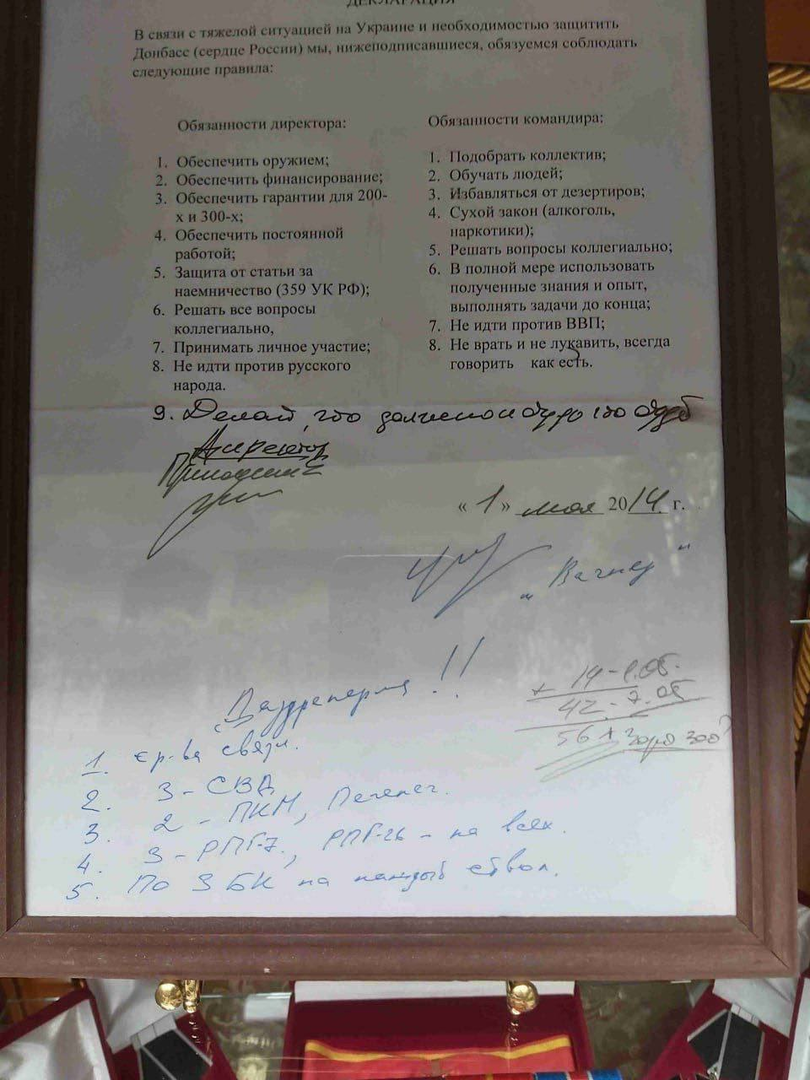 ДЕКЛАРАЦИЯ
В связи с тяжелой ситуацией на Украине и необходимостью защитить
Донбасс (сердце России) мы, нижеподписавшиеся, обязуемся соблюдать
следующие правила:
Обязанности директора:
1. Обеспечить оружием;
2. Обеспечить финансирование;
3. Обеспечить гарантии для 200-
х и 300-х;
4. Обеспечить постоянной
работой;
5. Защита от статьи за
наемничество (359 УК РФ);
6. Решать все вопросы
коллегиально,
7. Принимать личное участие;
8. Не идти против русского
народа.
Обязанности командира:
1. Подобрать коллектив;
2. Обучать людей;
3. Избавляться от дезертиров;
4. Сухой закон (алкоголь,
наркотики);
5. Решать вопросы коллегиально;
6. В полной мере использовать
полученные знания и опыт,
выполнять задачи до конца;
7. Не идти против ВВП;
8. Не врать и не лукавить, всегда
говорить как есть.
9. Делай, что должно и будь что будет
Директор
Пригожин
« 1 » мая 2014 г.
"Вагнер"
14 - 1.05.
+ 42 - 7.05
56
1. ср-ва связи.
2. 3 - СВД
3. 2 - ПКМ, Печенег.
4. 3 - РПГ-7, РПГ-26 - на всех.
5. По 3 БК на каждый ствол.